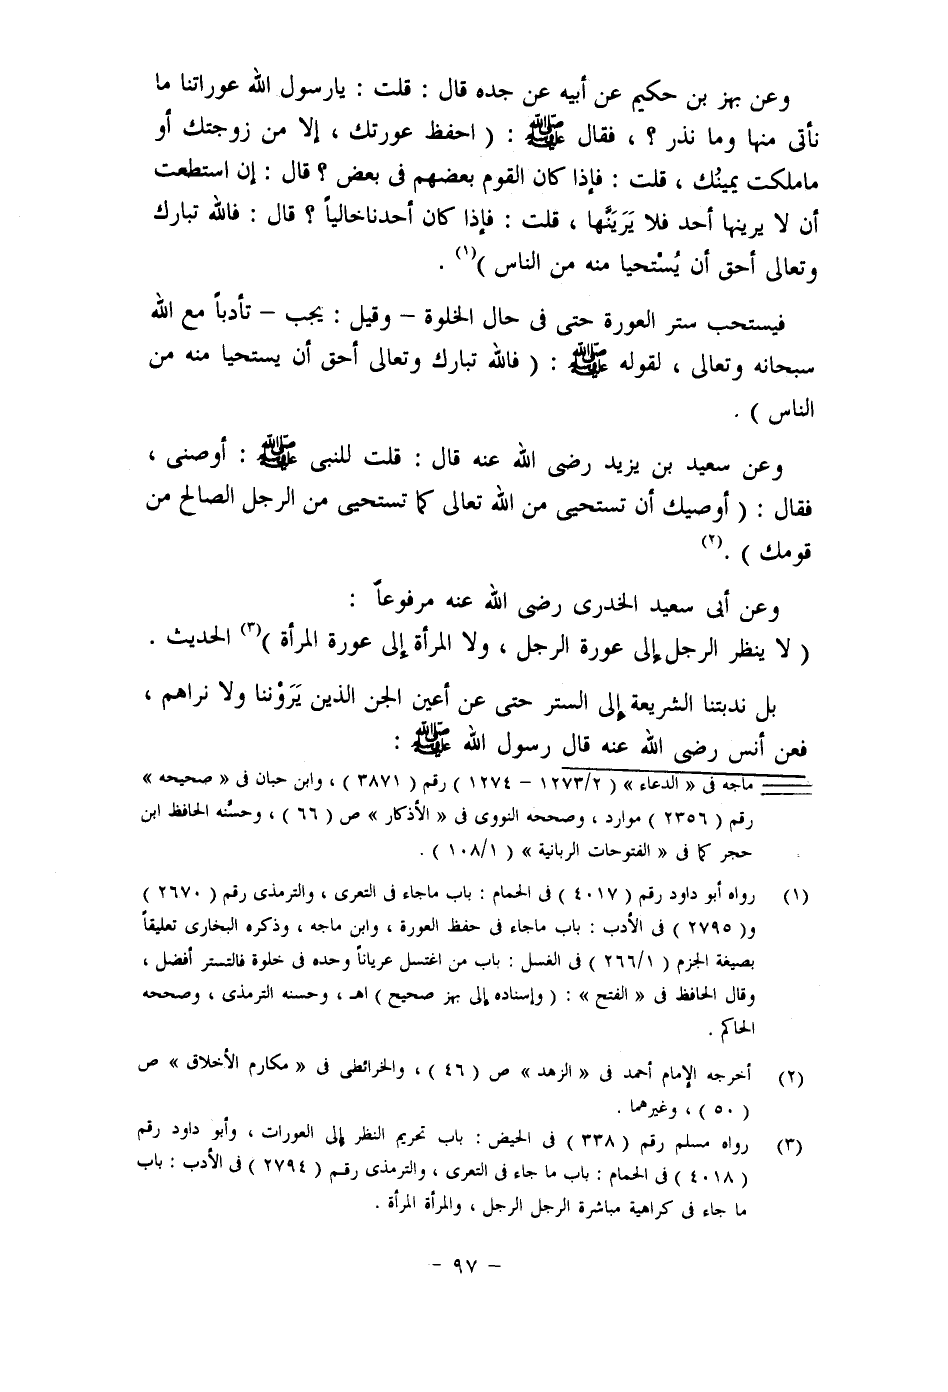 وعن بهز بن حكيم عن أبيه عن جده قال : قلت : يارسول الله عوراتنا ما
نأتى منها وما نذر ؟ ، فقال ﷺ : ( احفظ عورتك ، إلا من زوجتك أو
ماملكت يمينُك ، قلت : فإذا كان القوم بعضهم فى بعض ؟ قال : إن استطعت
أن لا يرينها أحد فلا يَرَيَنَّها ، قلت : فإذا كان أحدناخالياً ؟ قال : فالله تبارك
وتعالى أحق أن يُسْتحيا منه من الناس )(١) .
فيستحب ستر العورة حتى فى حال الخلوة – وقيل : يجب – تأدباً مع الله
سبحانه وتعالى ، لقوله ﷺ : ( فالله تبارك وتعالى أحق أن يستحيا منه من
الناس ) .
وعن سعيد بن يزيد رضى الله عنه قال : قلت للنبى ﷺ : أوصنى ،
فقال : ( أوصيك أن تستحيى من الله تعالى كما تستحيى من الرجل الصالح من
قومك ) .(٢)
وعن أبى سعيد الخدرى رضى الله عنه مرفوعاً :
( لا ينظر الرجل إلى عورة الرجل ، ولا المرأة إلى عورة المرأة )(٣) الحديث .
بل ندبتنا الشريعة إلى الستر حتى عن أعين الجن الذين يَرَوْننا ولا نراهم ،
فعن أنس رضى الله عنه قال رسول الله ﷺ :
= ماجه فى « الدعاء » ( ١٢٧٣/٢ – ١٢٧٤ ) رقم ( ٣٨٧١ ) ، وابن حبان فى « صحيحه »
رقم ( ٢٣٥٦ ) موارد ، وصححه النووى فى « الأذكار » ص ( ٦٦ ) ، وحسَّنه الحافظ ابن
حجر كما فى « الفتوحات الربانية » ( ١٠٨/١ ) .
(١) رواه أبو داود رقم ( ٤٠١٧ ) فى الحمام : باب ماجاء فى التعرى ، والترمذى رقم ( ٢٦٧٠ )
و( ٢٧٩٥ ) فى الأدب : باب ماجاء فى حفظ العورة ، وابن ماجه ، وذكره البخارى تعليقاً
بصيغة الجزم ( ٢٦٦/١ ) فى الغسل : باب من اغتسل عرياناً وحده فى خلوة فالتستر أفضل ،
وقال الحافظ فى « الفتح » : ( وإسناده إلى بهز صحيح ) اهـ ، وحسنه الترمذى ، وصححه
الحاكم .
(٢) أخرجه الإمام أحمد فى « الزهد » ص ( ٤٦ ) ، والخرائطى فى « مكارم الأخلاق » ص
( ٥٠ ) ، وغيرهما .
(٣) رواه مسلم رقم ( ٣٣٨ ) فى الحيض : باب تحريم النظر إلى العورات ، وأبو داود رقم
( ٤٠١٨ ) فى الحمام : باب ما جاء فى التعرى ، والترمذى رقم ( ٢٧٩٤ ) فى الأدب : باب
ما جاء فى كراهية مباشرة الرجل الرجل ، والمرأة المرأة .
– ٩٧ –